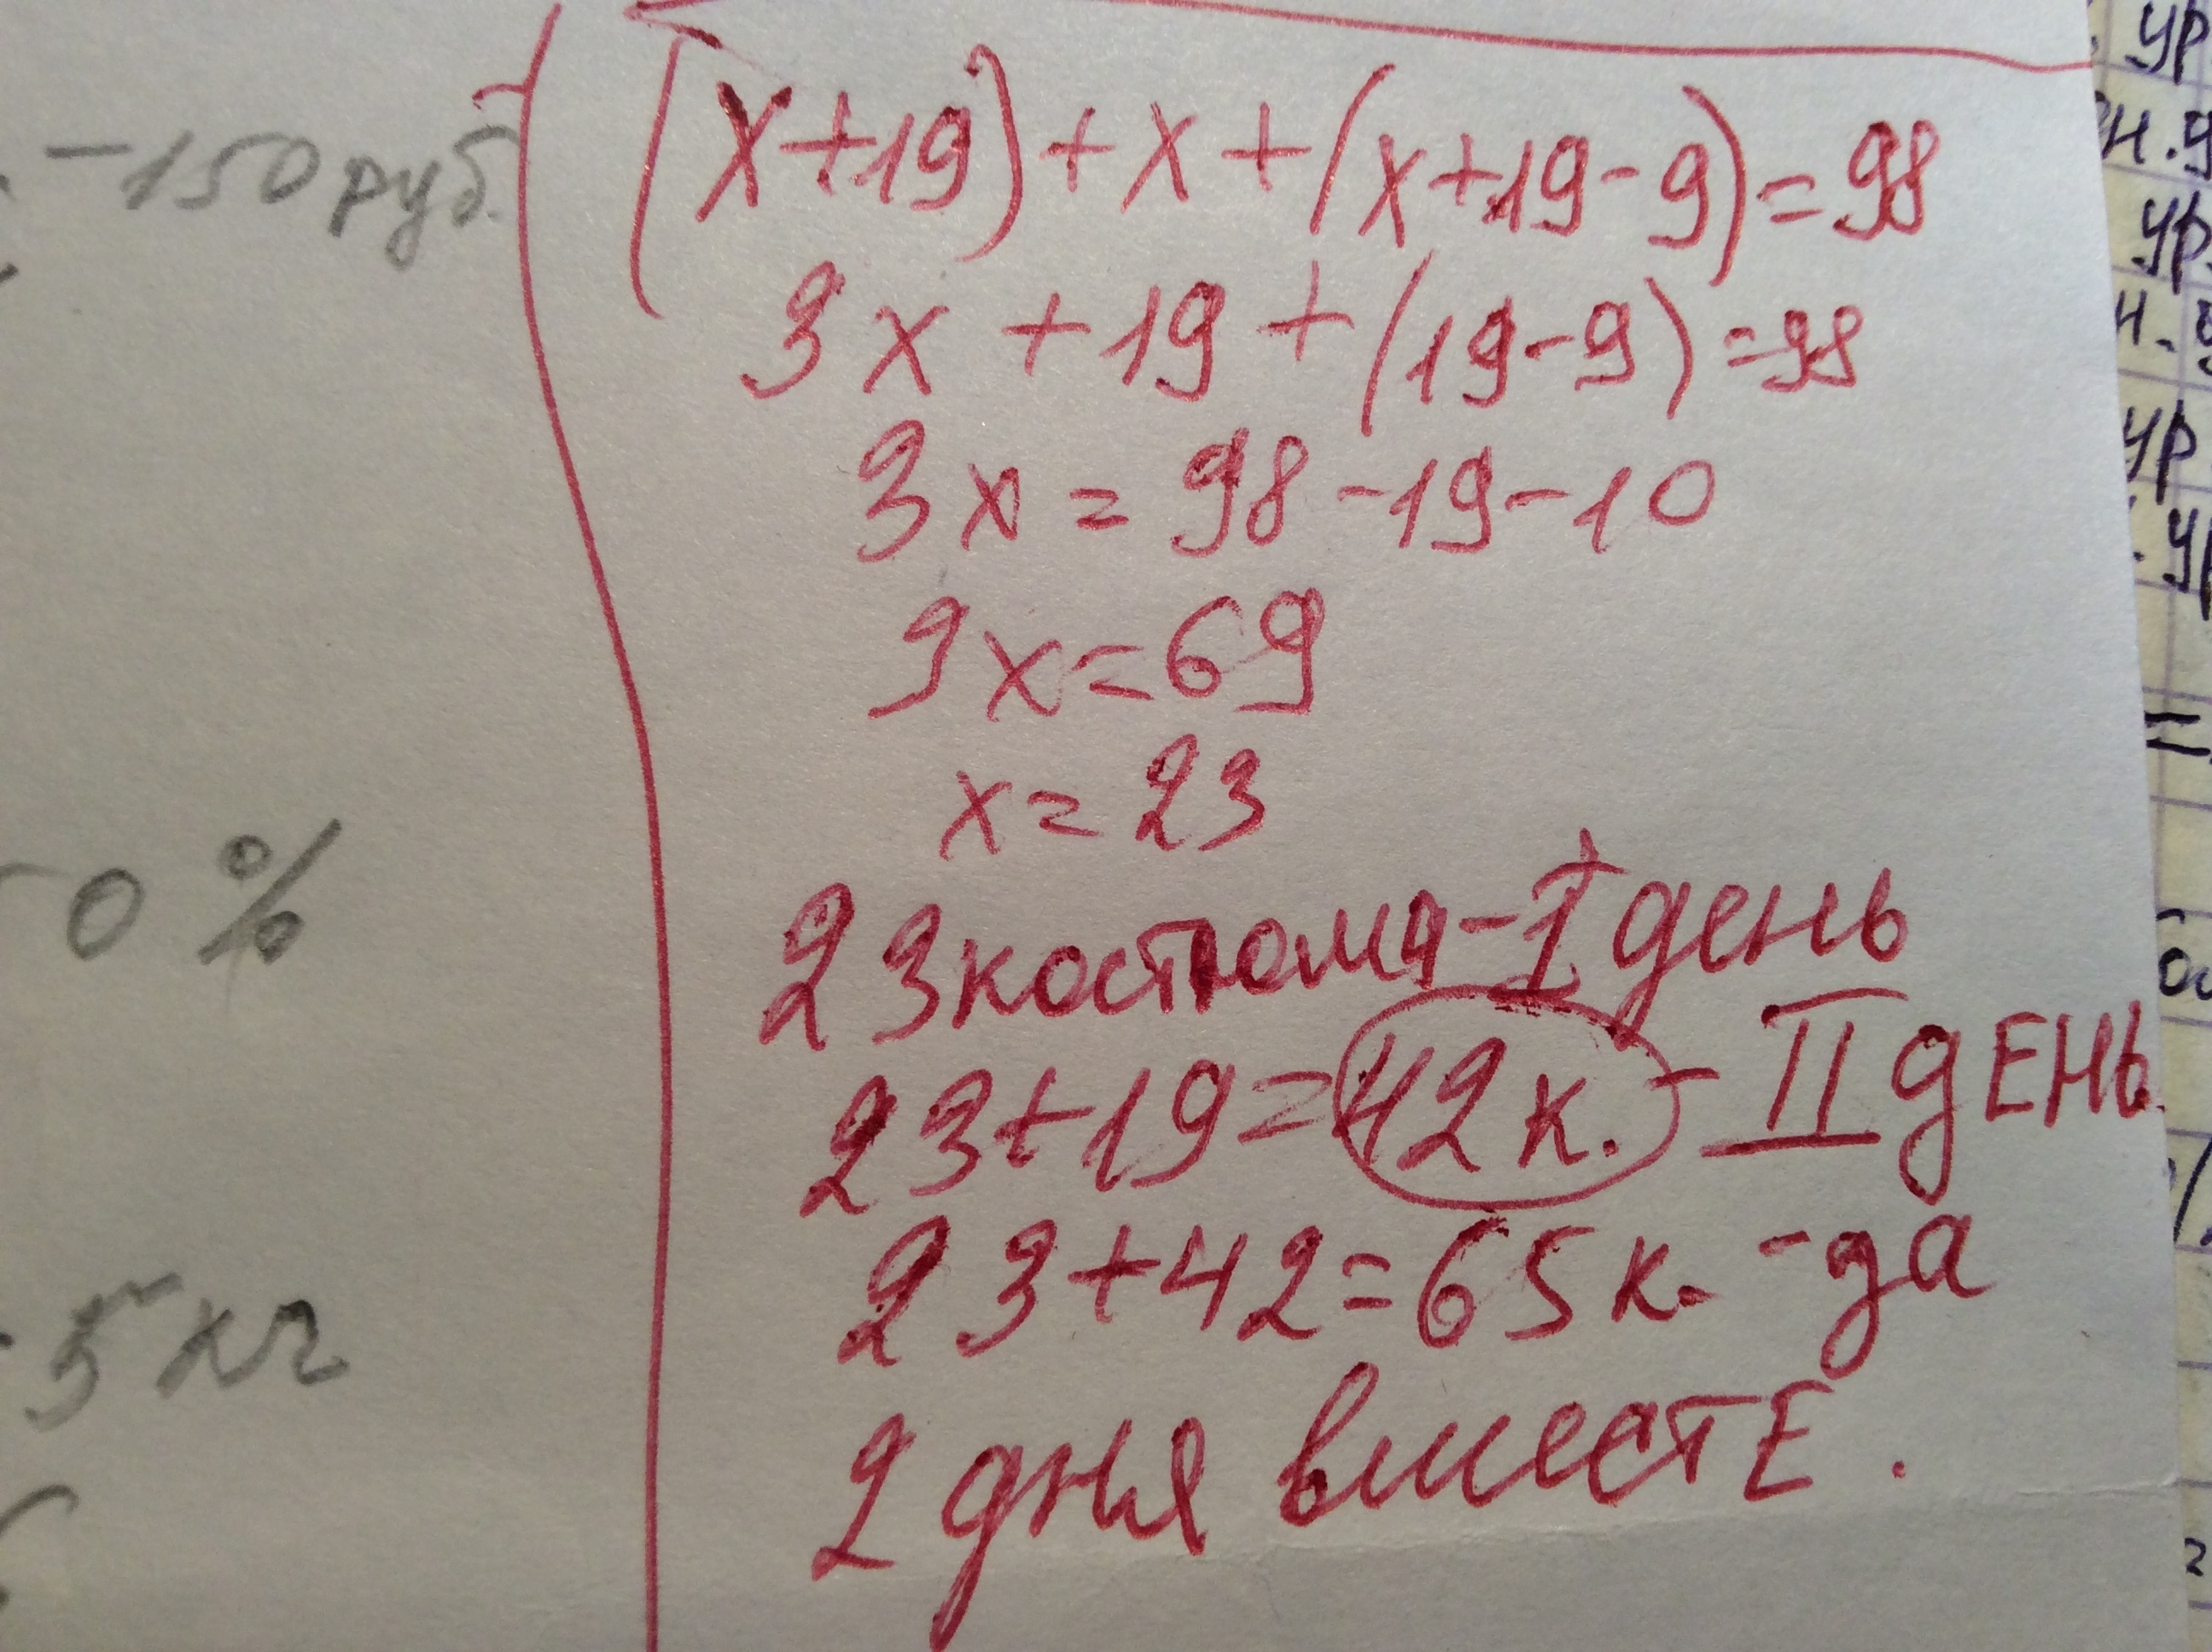 -150 руб.
(x+19)+x+(x+19-9)=98
3x+19+(19-9)=98
3x=98-19-10
3x=69
x=23
0 %
23 костюма - I день
23+19=42 к. - II день
5 кг
23+42=65 к. - за
2 дня вместе.